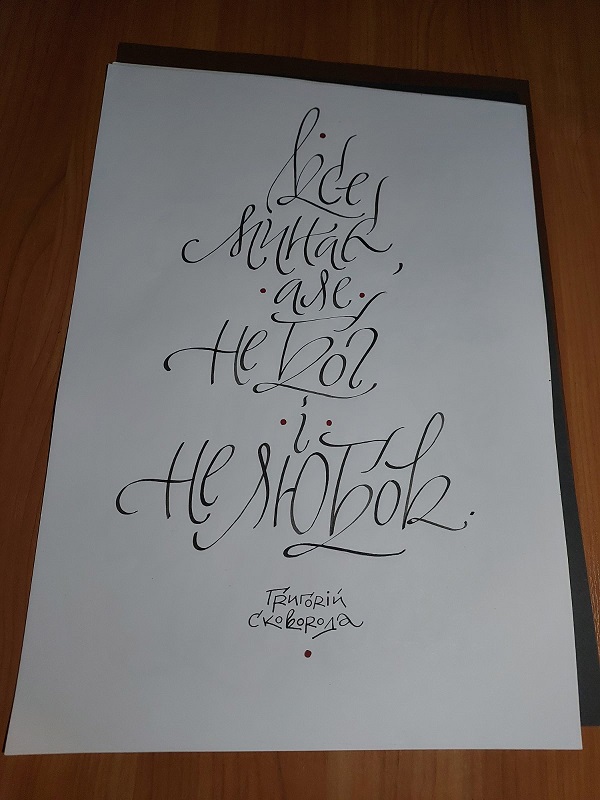 Все
минає,
але
не Бог
і
не любов.
Григорій
Сковорода